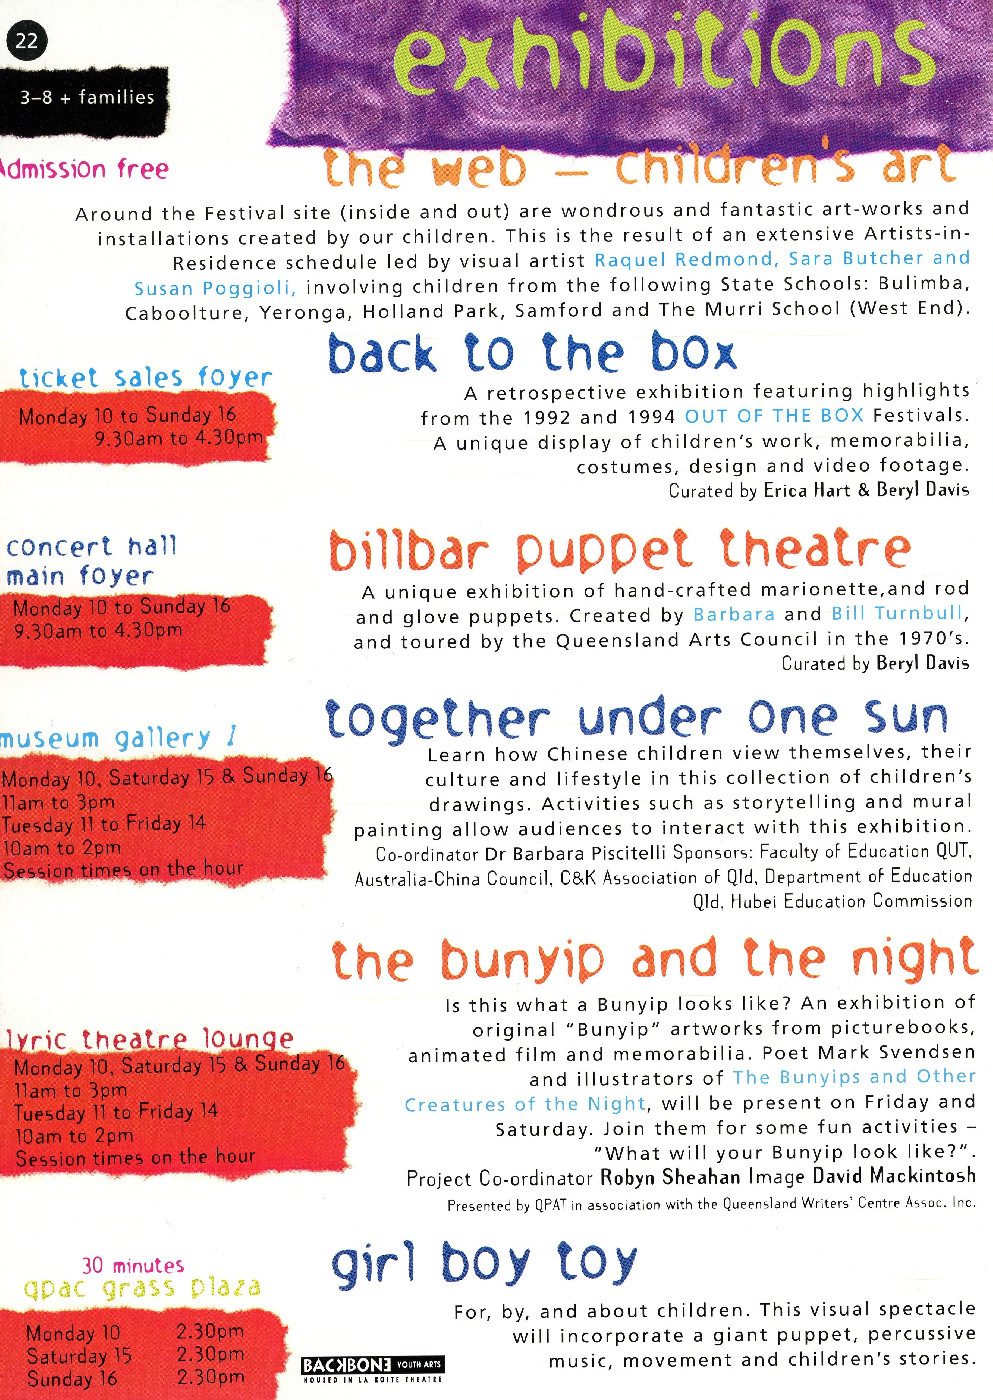 22
3–8 + families
exhibitions
Admission free
the web – children's art
Around the Festival site (inside and out) are wondrous and fantastic art-works and
installations created by our children. This is the result of an extensive Artists-in-
Residence schedule led by visual artist Raquel Redmond, Sara Butcher and
Susan Poggioli, involving children from the following State Schools: Bulimba,
Caboolture, Yeronga, Holland Park, Samford and The Murri School (West End).
back to the box
ticket sales foyer
Monday 10 to Sunday 16
9.30am to 4.30pm
A retrospective exhibition featuring highlights
from the 1992 and 1994 OUT OF THE BOX Festivals.
A unique display of children's work, memorabilia,
costumes, design and video footage.
Curated by Erica Hart & Beryl Davis
billbar puppet theatre
concert hall
main foyer
Monday 10 to Sunday 16
9.30am to 4.30pm
A unique exhibition of hand-crafted marionette,and rod
and glove puppets. Created by Barbara and Bill Turnbull,
and toured by the Queensland Arts Council in the 1970's.
Curated by Beryl Davis
together under one sun
museum gallery 1
Monday 10, Saturday 15 & Sunday 16
11am to 3pm
Tuesday 11 to Friday 14
10am to 2pm
Session times on the hour
Learn how Chinese children view themselves, their
culture and lifestyle in this collection of children's
drawings. Activities such as storytelling and mural
painting allow audiences to interact with this exhibition.
Co-ordinator Dr Barbara Piscitelli Sponsors: Faculty of Education QUT,
Australia-China Council, C&K Association of Qld, Department of Education
Qld, Hubei Education Commission
the bunyip and the night
lyric theatre lounge
Monday 10, Saturday 15 & Sunday 16
11am to 3pm
Tuesday 11 to Friday 14
10am to 2pm
Session times on the hour
Is this what a Bunyip looks like? An exhibition of
original "Bunyip" artworks from picturebooks,
animated film and memorabilia. Poet Mark Svendsen
and illustrators of The Bunyips and Other
Creatures of the Night, will be present on Friday and
Saturday. Join them for some fun activities –
"What will your Bunyip look like?".
Project Co-ordinator Robyn Sheahan Image David Mackintosh
Presented by QPAT in association with the Queensland Writers' Centre Assoc. Inc.
girl boy toy
30 minutes
qpac grass plaza
Monday 10 2.30pm
Saturday 15 2.30pm
Sunday 16 2.30pm
For, by, and about children. This visual spectacle
will incorporate a giant puppet, percussive
music, movement and children's stories.
BACKBONE YOUTH ARTS
HOUSED IN LA BOITE THEATRE